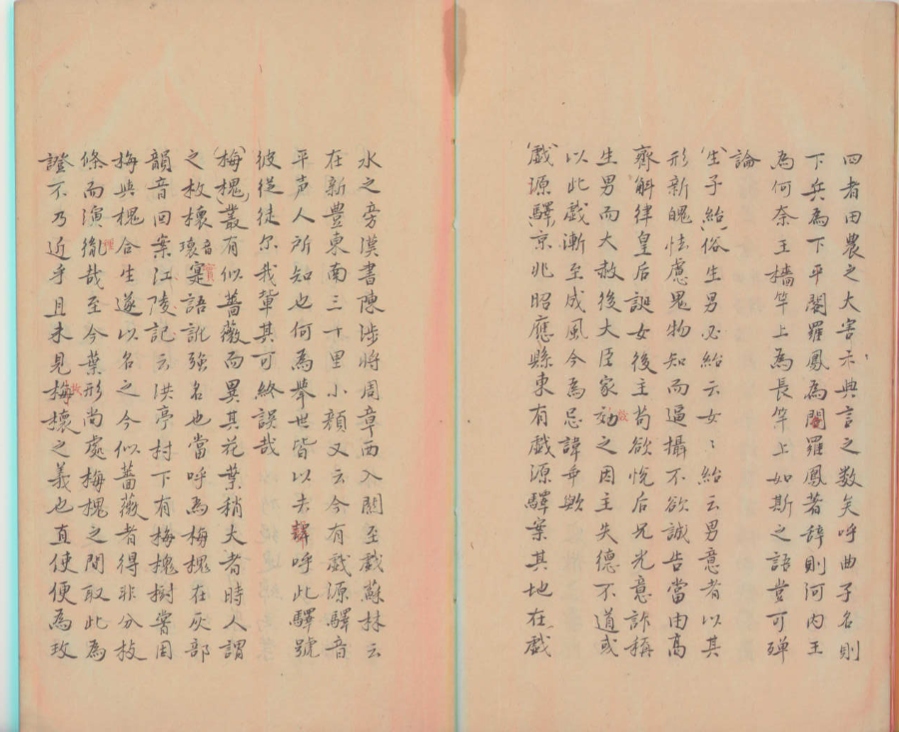 四者田農之大害不典言之数矣呼曲子名則
下兵為下平閣羅鳳為閣羅鳳著辞則河内王
為何奈王檣竿上為長竿上如斯之語豈可殫
論
生子紿俗生男必紿云女〻紿云男意者以其
形新魄怯慮鬼物知而逼攝不欲誠告當由高
齊斛律皇后誕女後主苟欲悅后兄光意詐稱
生男而大赦後大臣家効之因主失德不道或
以此戲漸至成風今為忌諱乖歟
戲源驛京兆昭應縣東有戲源驛案其地在戲
水之旁漢書陳涉將周章西入關至戲蘇林云
在新豐東南三十里小顏又云今有戲源驛音
平声人所知也何為舉世皆以去聲呼此驛號
彼從徒尔我輩其可終誤哉
梅槐叢有似薔薇而異其花葉稍大者時人謂
之枚櫰音瓌寔語訛強名也當呼為梅槐在灰部
韻音回案江陵記云洪亭村下有梅槐樹嘗因
梅與槐合生遂以名之今似薔薇者得非分枝
條而演胤哉至今葉形尚處梅槐之間取此為
證不乃近乎且未見梅櫰之義也直使便為玫